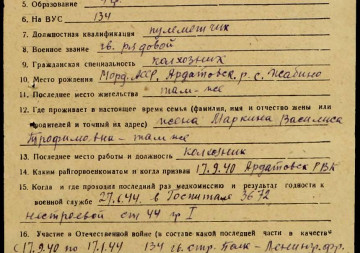 5. Образование
6. На ВУС 134
7. Должностная квалификация пулеметчик
8. Военное звание гв. рядовой
9. Гражданская специальность колхозник
10. Место рождения Морд. АССР, Ардатовск. р. с. Жабино
11. Последнее место жительства там-же
12. Где проживает в настоящее время семья (фамилия, имя и отчество жены или
родителей и точный их адрес) жена Маркина Василиса
Трофимовна - там же
13. Последнее место работы и должность колхозник
14. Каким райгорвоенкоматом и когда призван 17.9.40 Ардатовск РВК
15. Когда и где проходил последний раз медкомиссию и результат годности к
военной службе 27.6.44. в Госпитале 3672
нестроевой ст 44 гр I
16. Участие в Отечественной войне (в составе какой последней части и в качестве
с 17.9.40 по 17.1.44 134 гв. стр. Полк - Ленингр. фр.